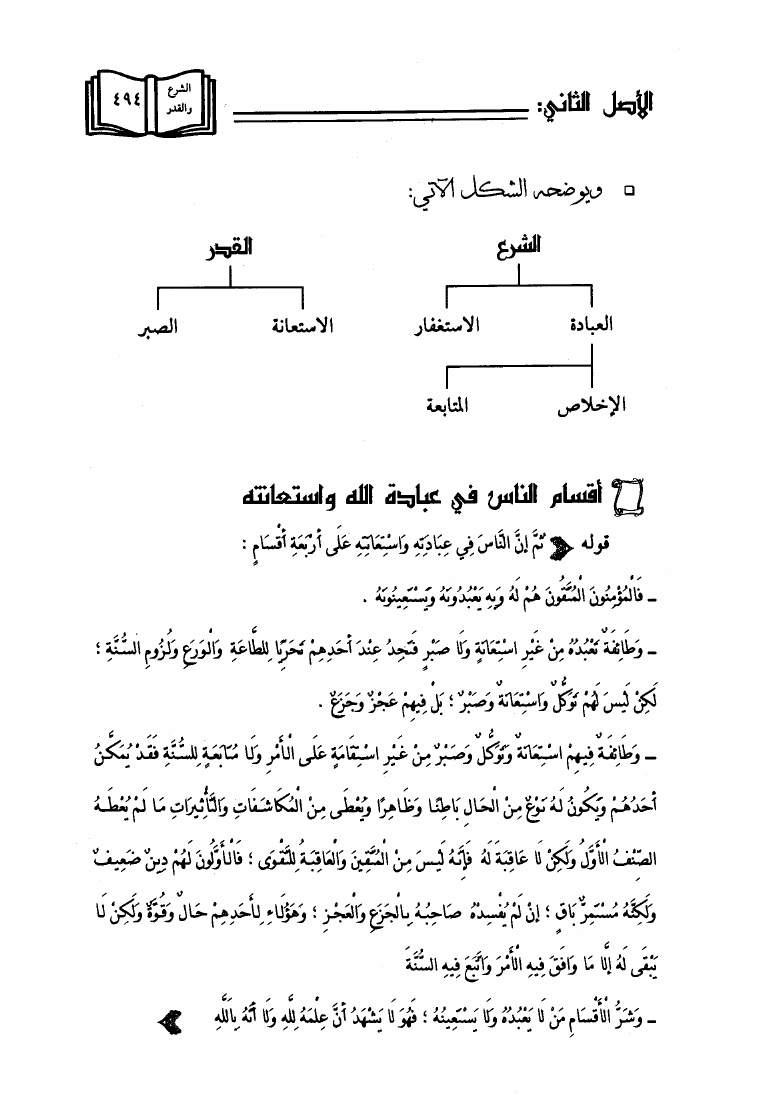 الأصل الثاني:
الشرع
والقدر
٤٩٤
ويوضحه الشكل الآتي:
الشرع
القدر
العبادة
الاستغفار
الاستعانة
الصبر
الإخلاص
المتابعة
أقسام الناس في عبادة الله واستعانته
قوله ثُمَّ إِنَّ النَّاسَ فِي عِبَادَتِهِ وَاسْتِعَانَتِهِ عَلَى أَرْبَعَةِ أَقْسَامٍ :
ـ فَالْمُؤْمِنُونَ الْمُتَّقُونَ هُمْ لَهُ وَبِهِ يَعْبُدُونَهُ وَيَسْتَعِينُونَهُ .
ـ وَطَائِفَةٌ تَعْبُدُهُ مِنْ غَيْرِ اسْتِعَانَةٍ وَلَا صَبْرٍ فَتَجِدُ عِنْدَ أَحَدِهِمْ تَحَرِّيًا لِلطَّاعَةِ وَالْوَرَعِ وَلُزُومِ السُّنَّةِ ؛
لَكِنْ لَيْسَ لَهُمْ تَوَكُّلٌ وَاسْتِعَانَةٌ وَصَبْرٌ ؛ بَلْ فِيهِمْ عَجْزٌ وَجَزَعٌ .
ـ وَطَائِفَةٌ فِيهِمْ اسْتِعَانَةٌ وَتَوَكُّلٌ وَصَبْرٌ مِنْ غَيْرِ اسْتِقَامَةٍ عَلَى الْأَمْرِ وَلَا مُتَابَعَةٍ لِلسُّنَّةِ فَقَدْ يُمَكَّنُ
أَحَدُهُمْ وَيَكُونُ لَهُ نَوْعٌ مِنْ الْحَالِ بَاطِنًا وَظَاهِرًا وَيُعْطَى مِنْ الْمُكَاشَفَاتِ وَالتَّأْثِيرَاتِ مَا لَمْ يُعْطَهُ
الصِّنْفُ الْأَوَّلُ وَلَكِنْ لَا عَاقِبَةَ لَهُ فَإِنَّهُ لَيْسَ مِنْ الْمُتَّقِينَ وَالْعَاقِبَةُ لِلتَّقْوَى ؛ فَالْأَوَّلُونَ لَهُمْ دِينٌ ضَعِيفٌ
وَلَكِنَّهُ مُسْتَمِرٌّ بَاقٍ ؛ إِنْ لَمْ يُفْسِدْهُ صَاحِبُهُ بِالْجَزَعِ وَالْعَجْزِ ؛ وَهَؤُلَاءِ لِأَحَدِهِمْ حَالٌ وَقُوَّةٌ وَلَكِنْ لَا
يَبْقَى لَهُ إِلَّا مَا وَافَقَ فِيهِ الْأَمْرَ وَاتَّبَعَ فِيهِ السُّنَّةَ
ـ وَشَرُّ الْأَقْسَامِ مَنْ لَا يَعْبُدُهُ وَلَا يَسْتَعِينُهُ ؛ فَهُوَ لَا يَشْهَدُ أَنَّ عِلْمَهُ لِلَّهِ وَلَا أَنَّهُ بِاَللَّهِ